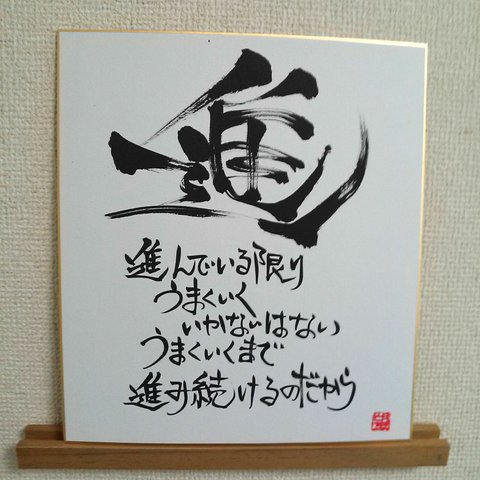 進
進んでいる限り
うまくいく
いかないはない
うまくいくまで
進み続けるのだから